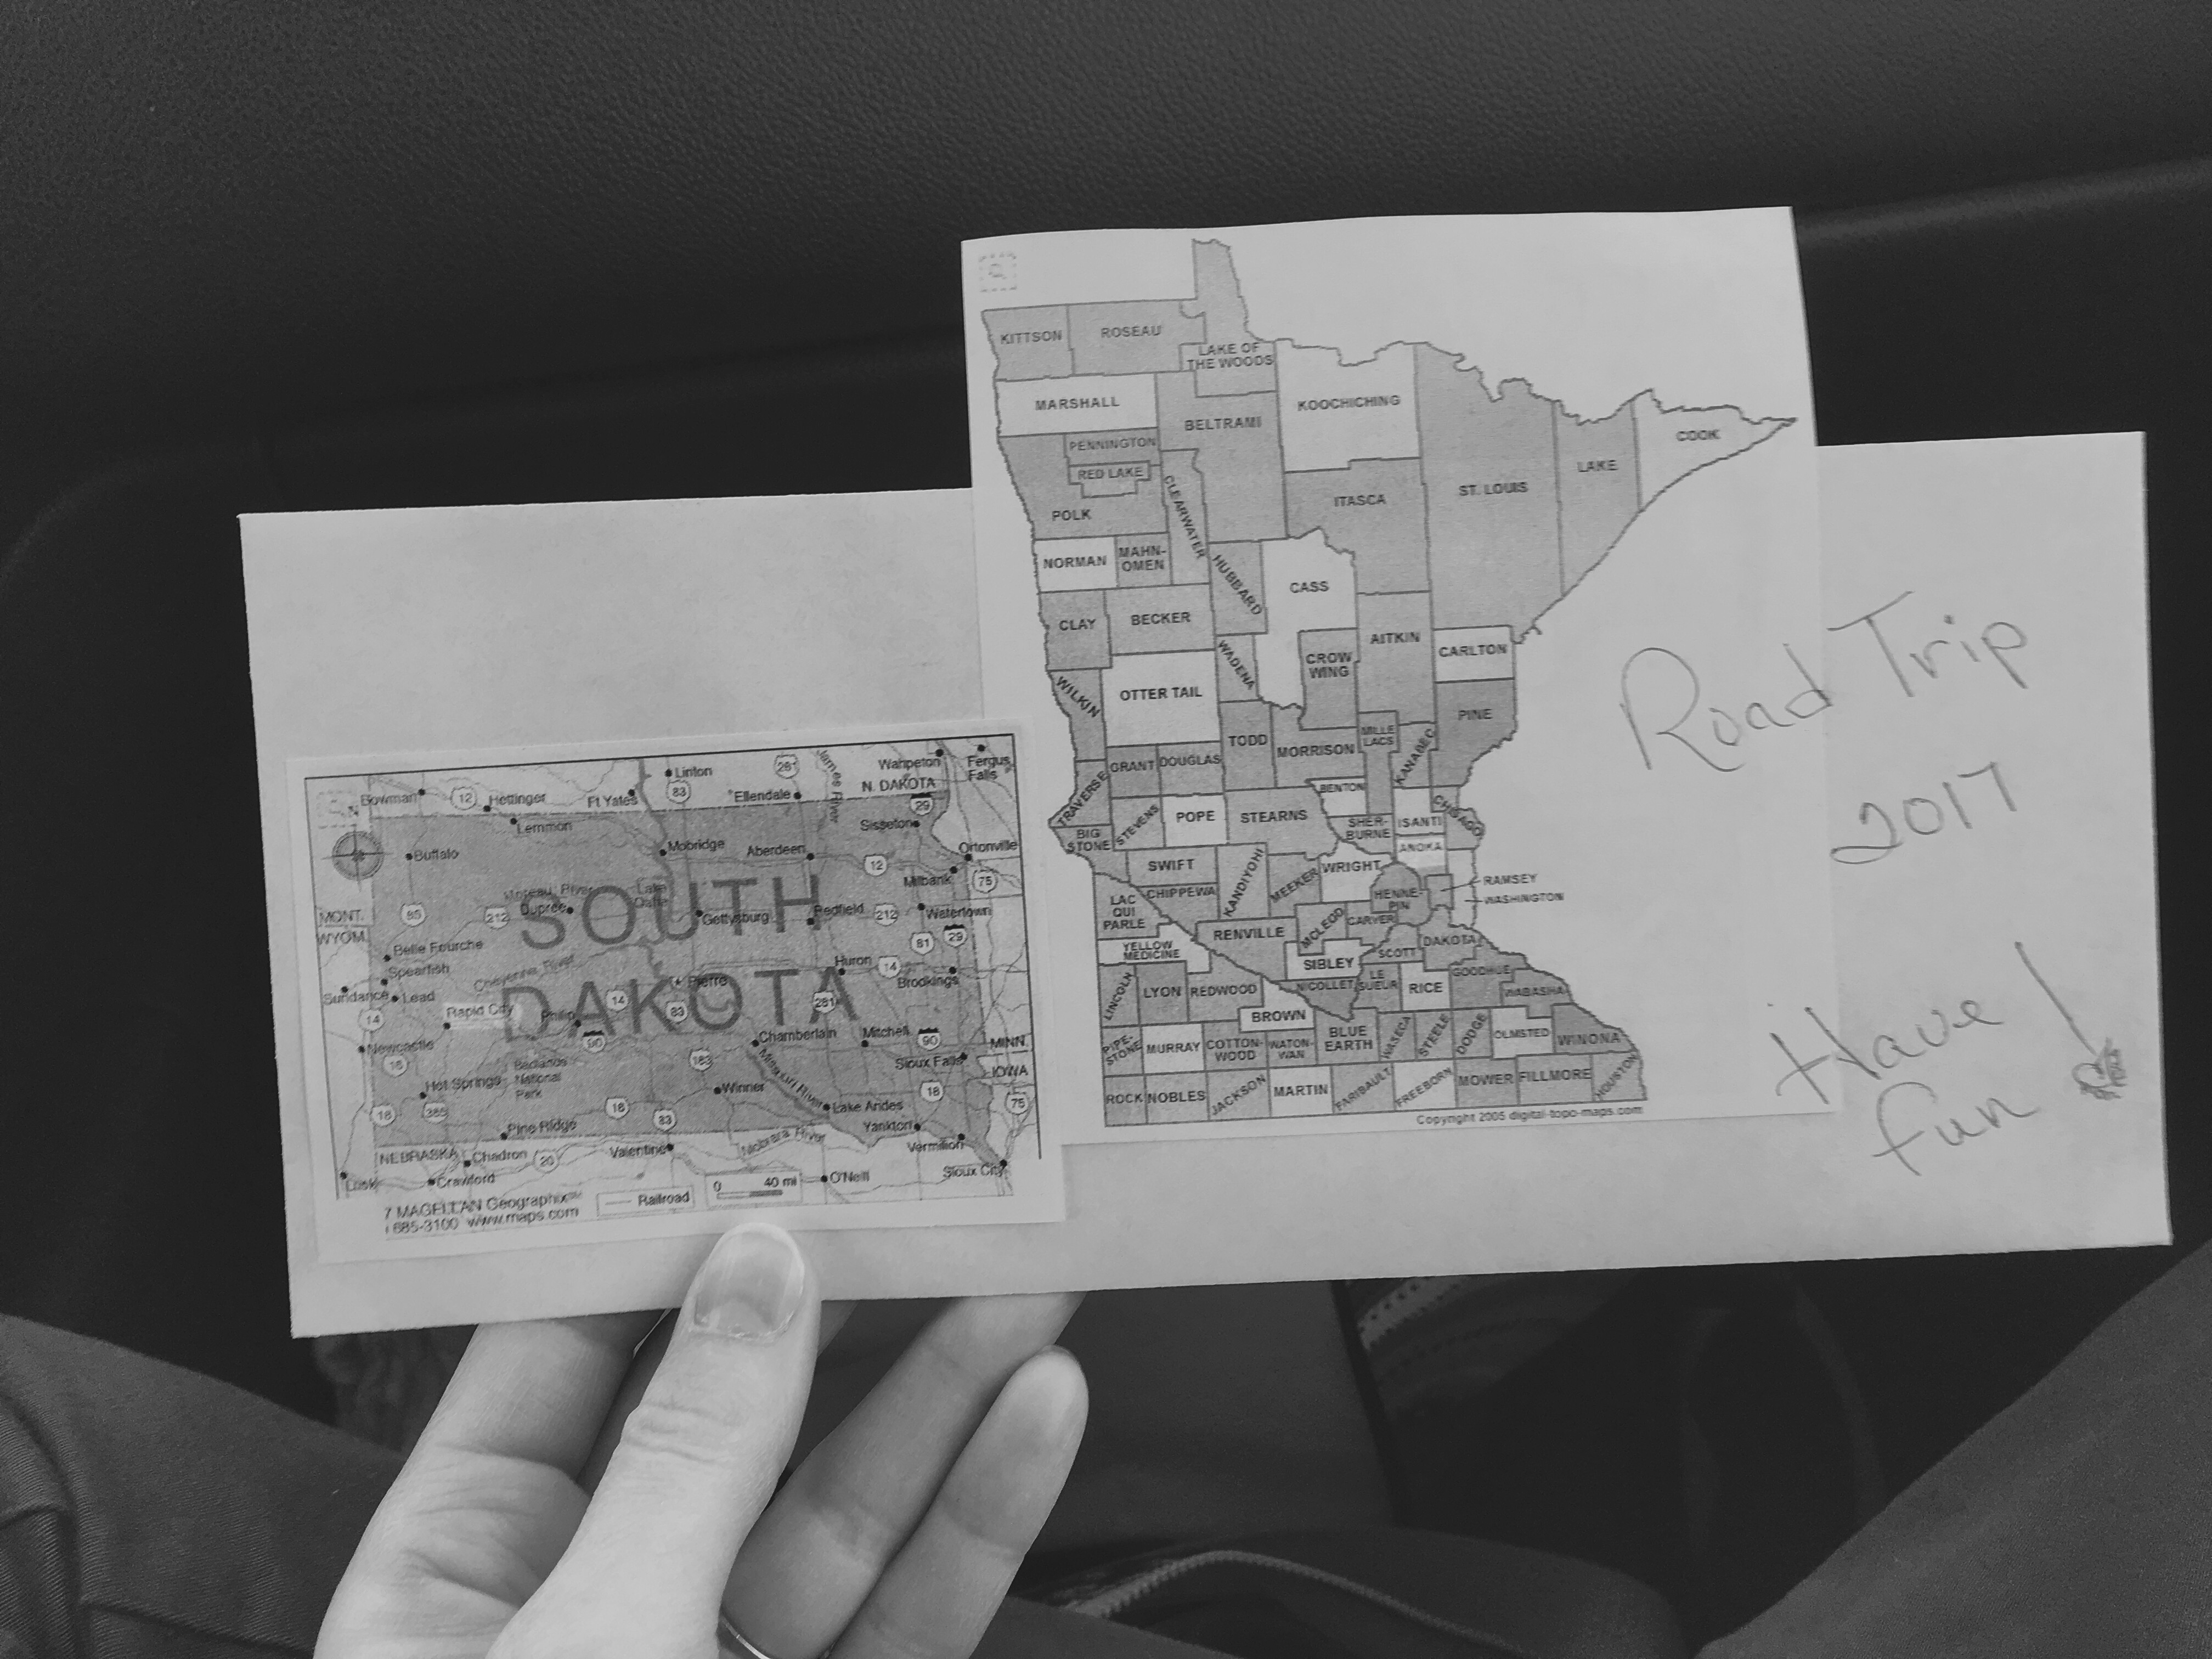 KITTSON
ROSEAU
LAKE OF
THE WOODS
MARSHALL
KOOCHICHING
BELTRAMI
COOK
PENNINGTON
RED LAKE
LAKE
CLEARWATER
ITASCA
ST. LOUIS
POLK
NORMAN
MAHN-
OMEN
HUBBARD
CASS
CLAY
BECKER
AITKIN
CARLTON
WADENA
CROW
WING
WILKIN
OTTER TAIL
PINE
TODD
MORRISON
MILLE
LACS
KANABEC
GRANT
DOUGLAS
TRAVERSE
BENTON
STEVENS
POPE
STEARNS
SHER-
BURNE
ISANTI
CHISAGO
BIG
STONE
ANOKA
SWIFT
KANDIYOHI
MEEKER
WRIGHT
RAMSEY
WASHINGTON
CHIPPEWA
HENNE-
PIN
LAC
QUI
PARLE
MCLEOD
CARVER
RENVILLE
YELLOW
MEDICINE
SIBLEY
SCOTT
DAKOTA
LINCOLN
LYON
REDWOOD
NICOLLET
LE
SUEUR
RICE
GOODHUE
WABASHA
BROWN
PIPE-
STONE
MURRAY
COTTON-
WOOD
WATON-
WAN
BLUE
EARTH
WASECA
STEELE
DODGE
OLMSTED
WINONA
ROCK
NOBLES
JACKSON
MARTIN
FARIBAULT
FREEBORN
MOWER
FILLMORE
HOUSTON
Copyright 2005 digital-topo-maps.com
Road Trip
2017
Have
fun!
Linton
281
James River
Wahpeton
Fergus
Falls
Bowman
12
Hettinger
Ft Yates
83
Ellendale
N. DAKOTA
29
Lemmon
Sisseton
Buffalo
Mobridge
Aberdeen
12
Ortonville
Milbank
75
Moreau River
Lake
Oahe
SOUTH
MONT.
85
212
Dupree
Gettysburg
Redfield
212
Watertown
WYOM.
Belle Fourche
81
29
Spearfish
Cheyenne River
Huron
14
Brookings
Pierre
Sundance
Lead
DAKOTA
14
Rapid City
14
83
281
Philip
90
Chamberlain
Mitchell
90
Newcastle
MINN.
16
Badlands
National
Park
183
Missouri River
Sioux Falls
IOWA
Hot Springs
Winner
18
75
18
385
18
83
Lake Andes
Pine Ridge
Yankton
NEBRASKA
Chadron
20
Valentine
Niobrara River
Vermilion
Lusk
Crawford
O'Neill
Sioux City
0 40 mi
Railroad
7 MAGELLAN Geographix
685-3100 www.maps.com